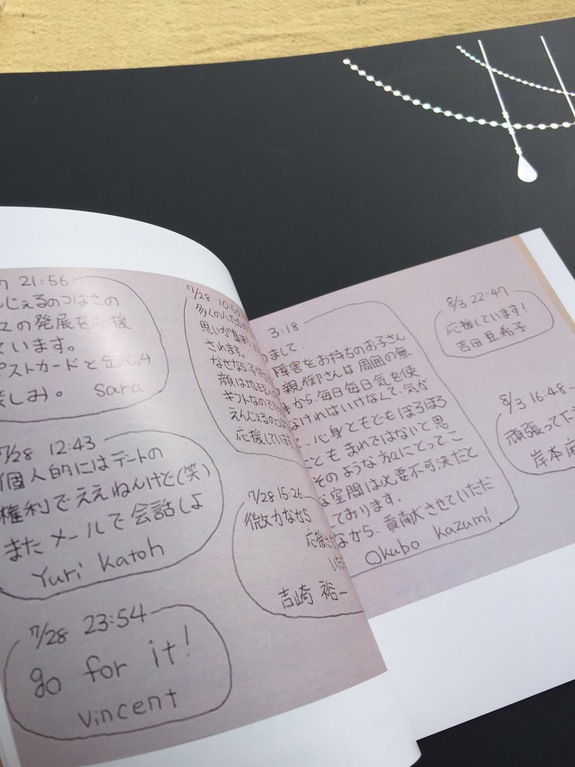 21:56
んじぇるのつばさの
の発展を応援
ています。
ポストカードと
楽しみ。 Sara
7/28 12:43
個人的にはデートの
権利でええねんけど(笑)
またメールで会話しよ
Yuri Katoh
7/28 23:54
go for it!
Vincent
7/28 10:0
思いが
されます。
なぜなら子供
顔は
えんじぇるの
応援しています
7/28 15:26
微力ながら
応援
吉崎 裕一
3:18
まして
障害をお持ちのお子さん
親御さんは周囲の無
から、毎日毎日気を使
なければいけなくて、気が
、心身ともどもぼろぼろ
ことも まれではないと思
そのような方にとってこ
な空間は必要不可決だと
ております。
ながら、貢献させていただ
Okubo Kazumi
8/3 22:47
応援しています!
吉田 亜希子
8/3 16:48
頑張って
岸本